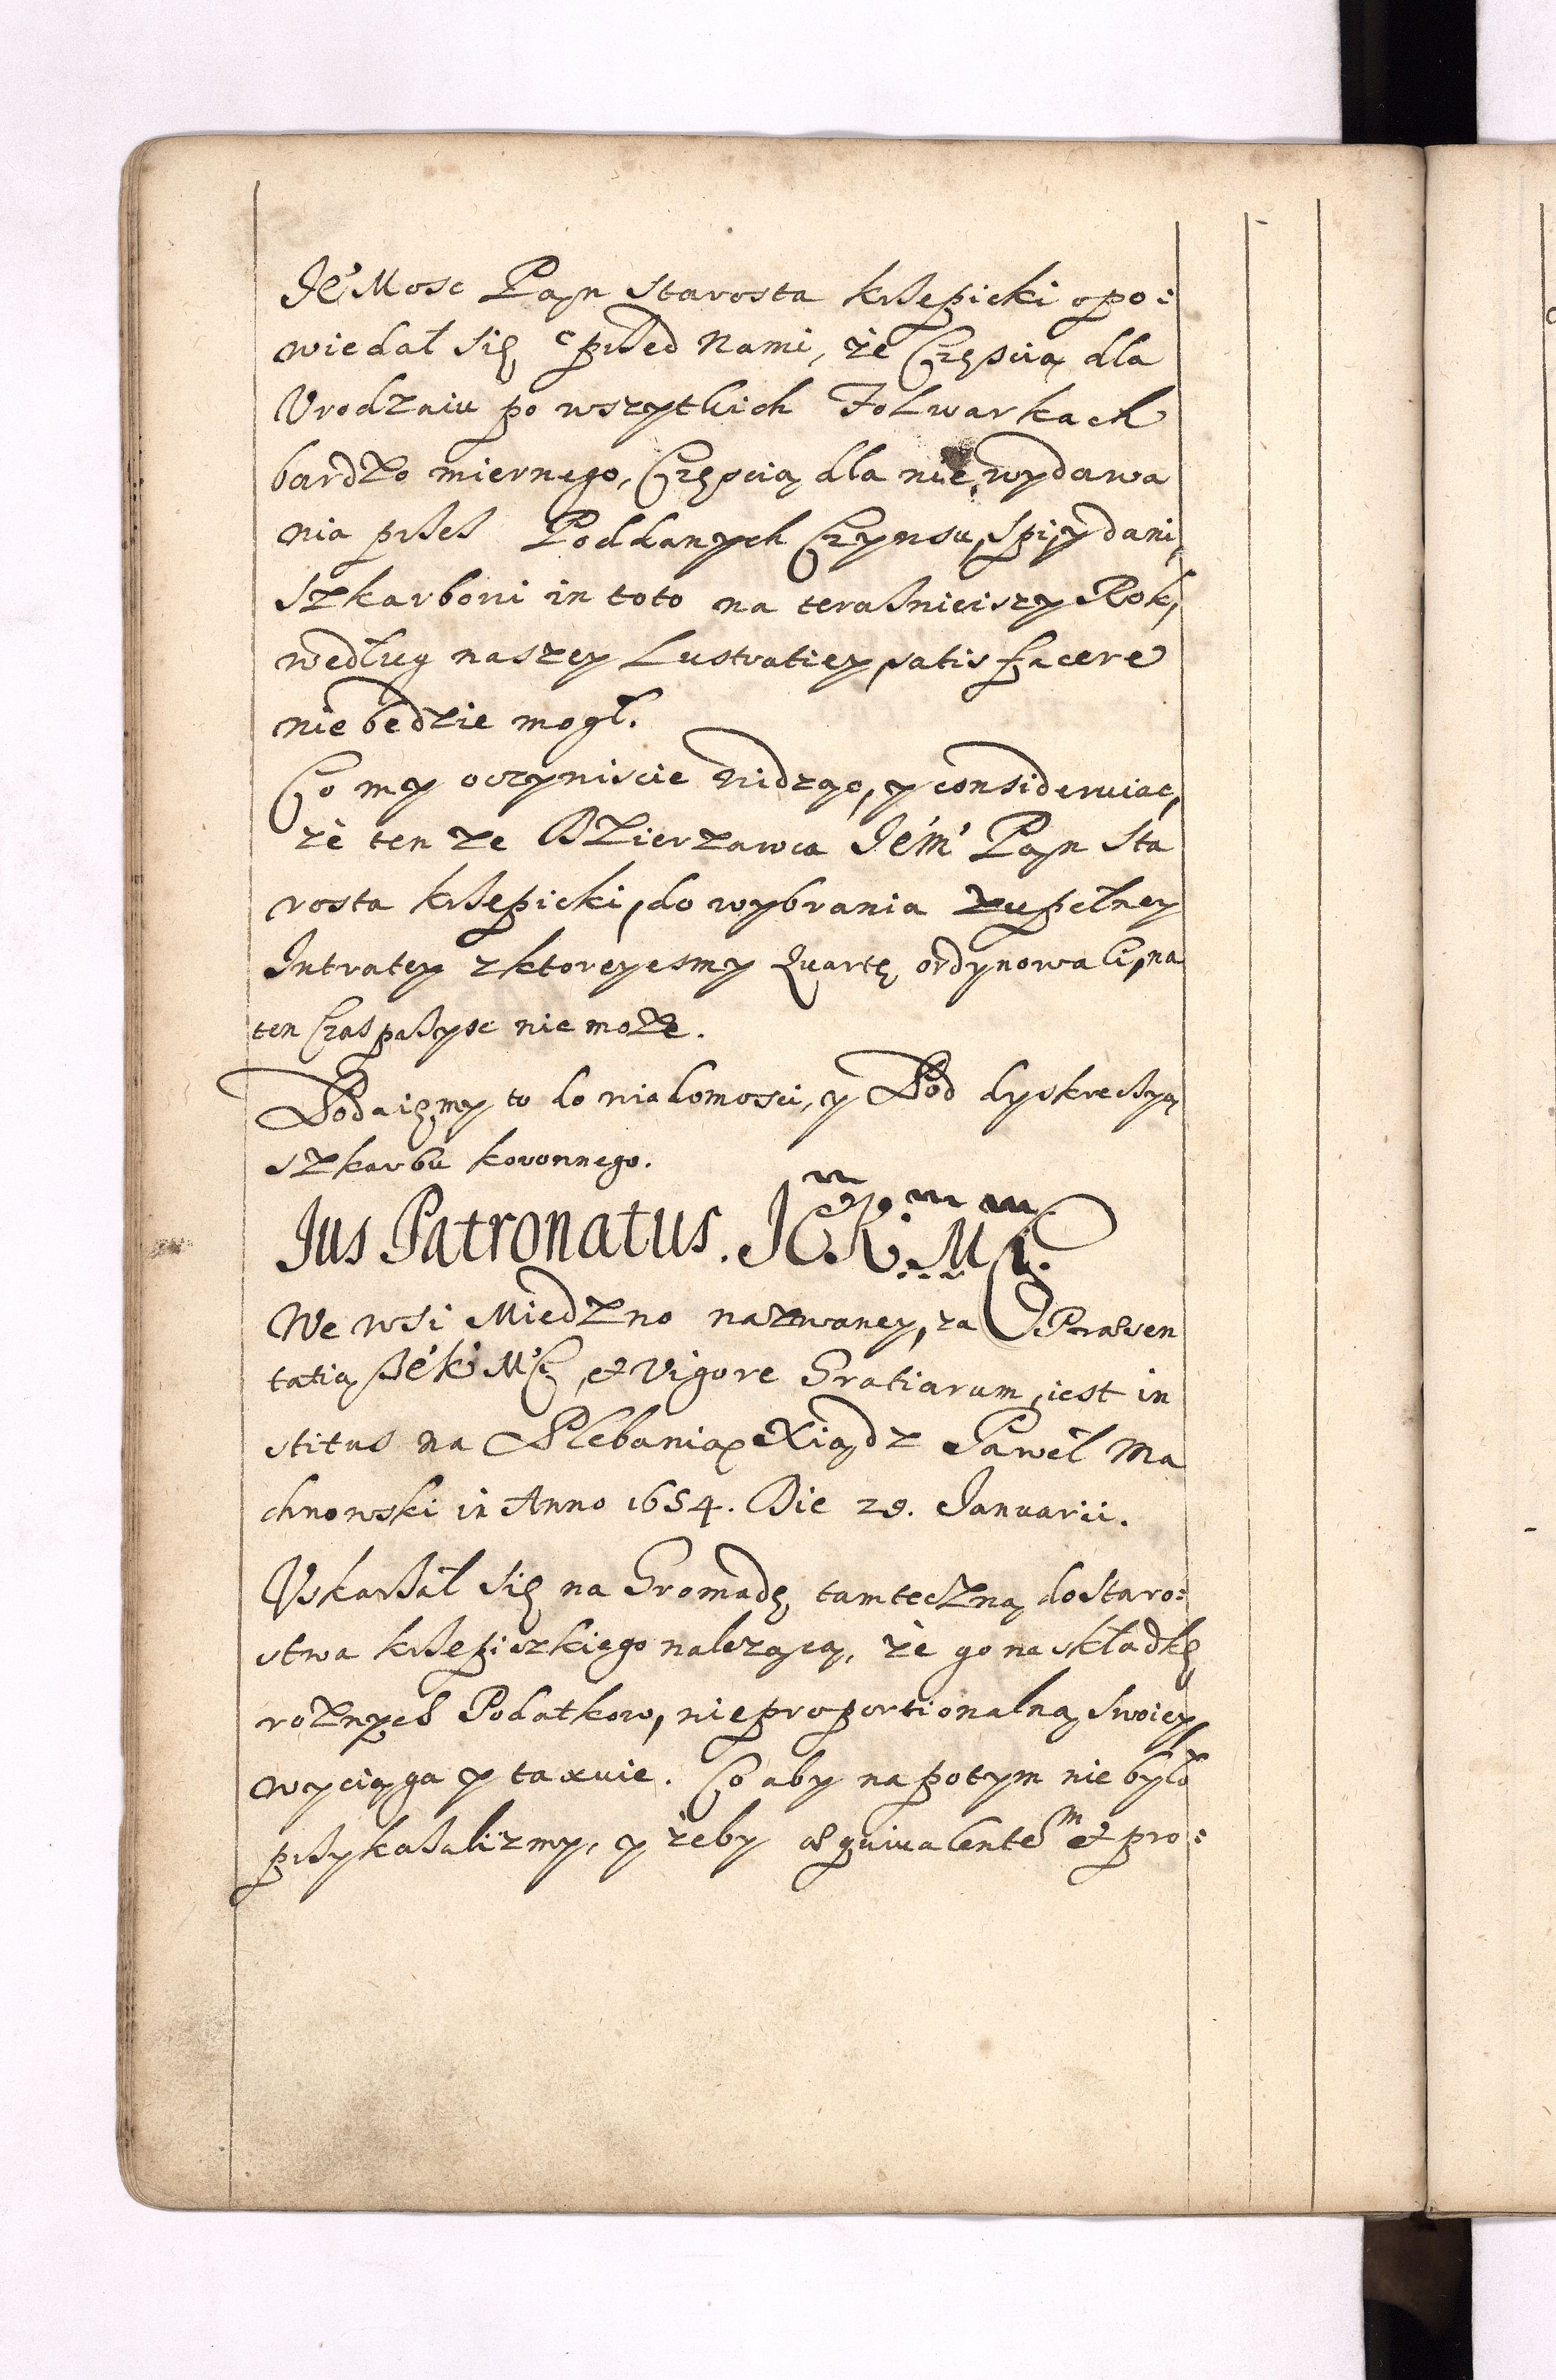 Je° Mosc Pan Starosta krzepicki opo:
wiedał się przed Nami, że Częścią dla
Vrodzaiu po wszytkich Folwarkach
bardzo miernego, Częścią dla nie wydawa
nia przez Poddanych Czynsu, Spi, y dani,
Szkarbowi in toto na teraznieiszy Rok,
według naszey Lustratiey, satisfacere
nie będzie mogł.
Co my oczywiscie widząc, y consideruiąc,
że ten że Dzierzawca Je°m' Pan Sta
rosta krzepicki, do wybrania zupełney
Intratey z ktoreyesmy Quartę ordynowali, na
ten Czas przyisc nie może.
Podaiemy to do wiadomosci, y Pod dyskretyą
szkarbu koronnego.
Jus Patronatus. Je° K. M Ci.
We wsi Miedzno nazwaney, za Præsen
tatią Je° K M Ci, et Vigore Gratiarum, iest in
stitus na Plebanią Xiądz Paweł Ma
chnowski in Anno 1654. Die 29. Januarii.
Vskarżał się na Gromadę tamteczną do Staro:
stwa krzepiczkiego należącą, że go na składkę
rożnych Podatkow, nieproportionalną swoiey,
wyciąga y taxuie. Co aby na potym nie było
przykazalizmy, y żeby æquivalentem et pro: